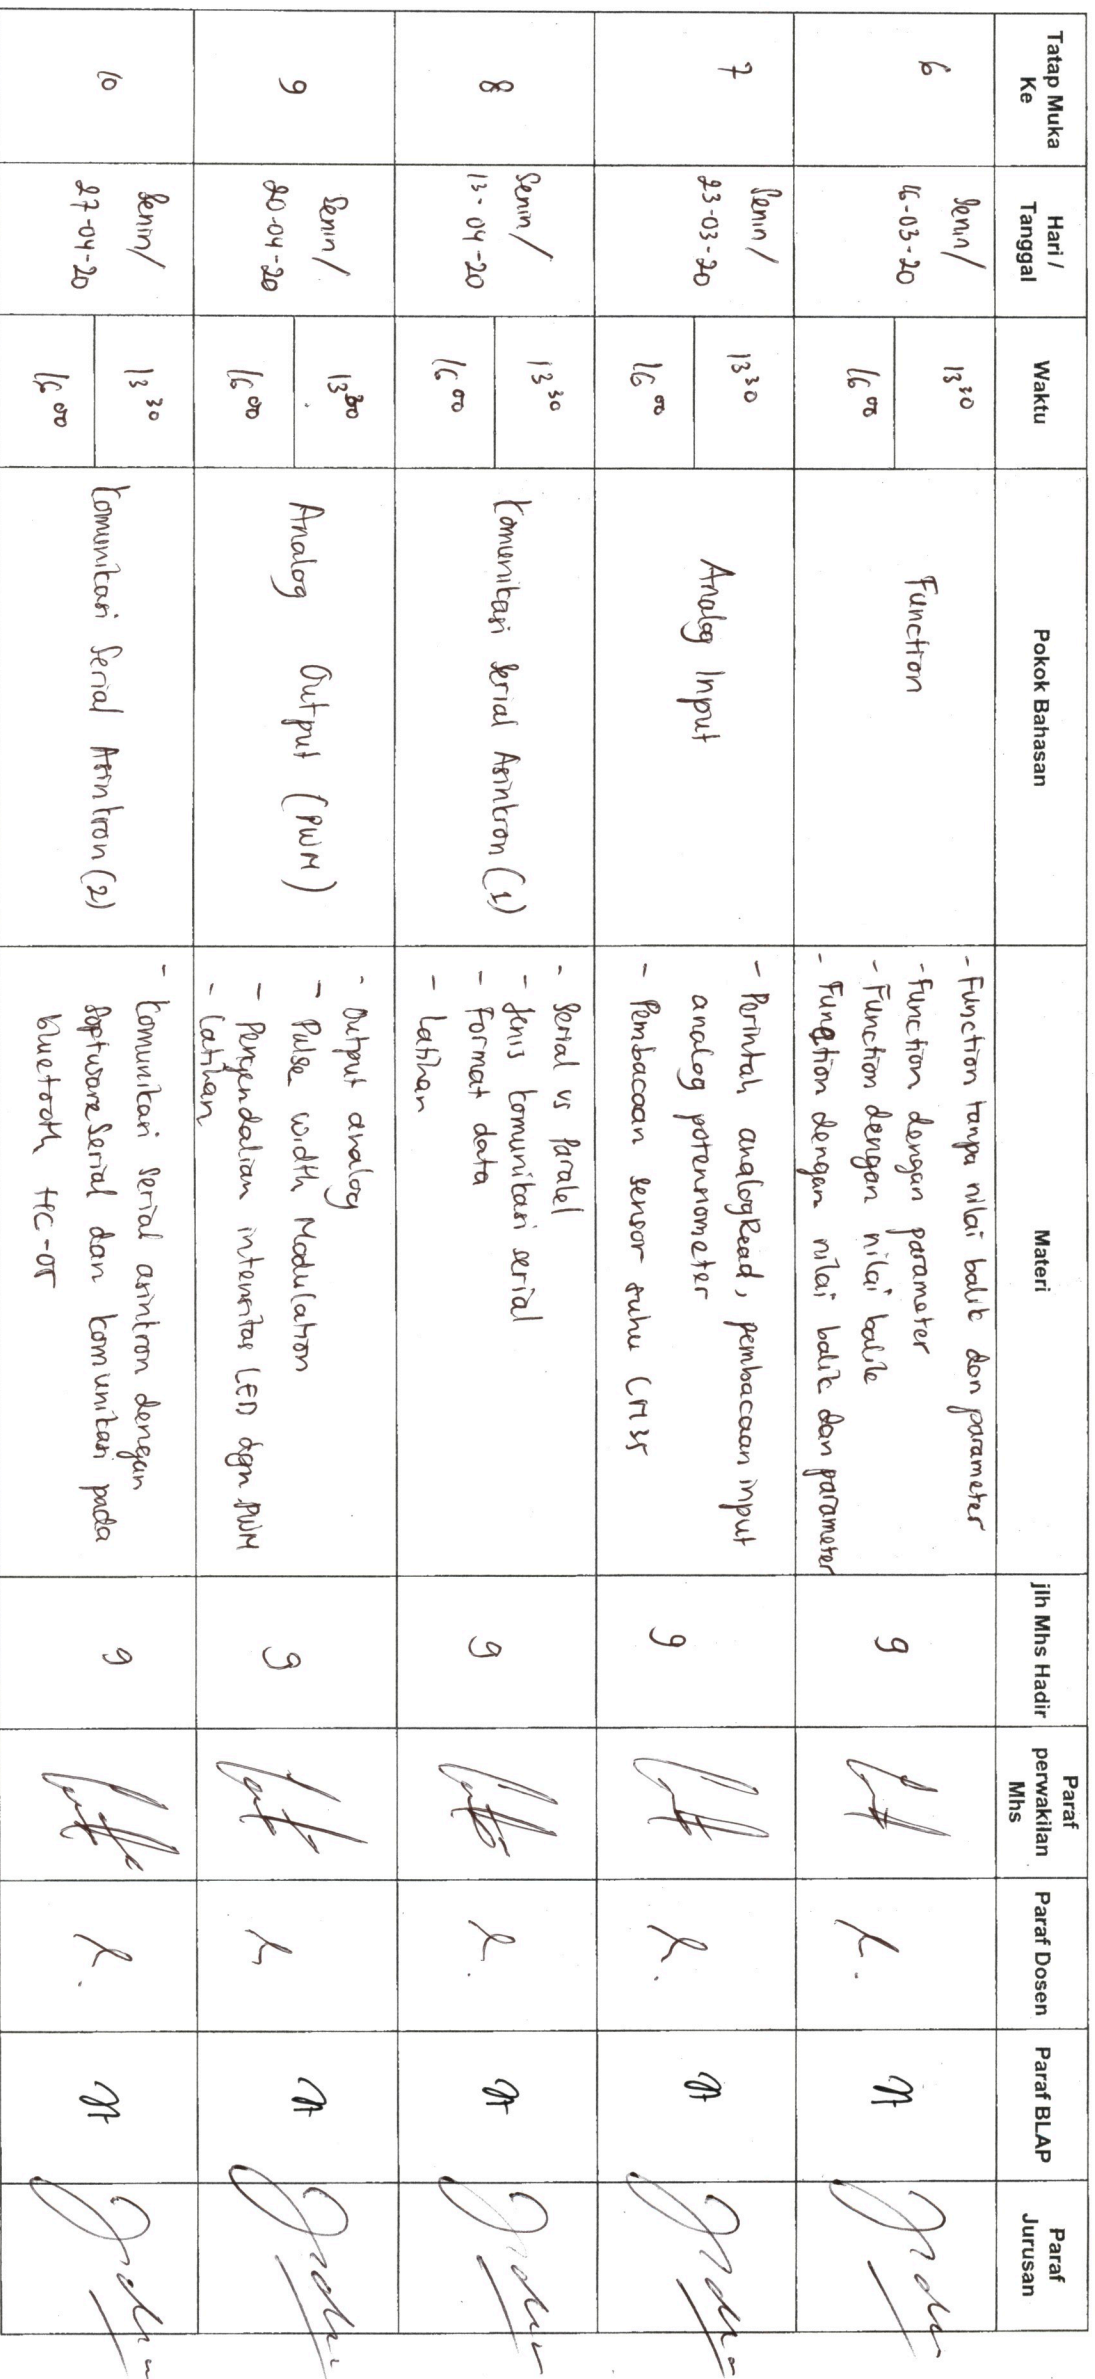 Tatap Muka Ke | Hari / Tanggal | Waktu | Pokok Bahasan | Materi | jlh Mhs Hadir | Paraf perwakilan Mhs | Paraf Dosen | Paraf BLAP | Paraf Jurusan
6
Senin/
16-03-20
13 30
16 00
Function
- Function tanpa nilai balik dan parameter
- Function dengan parameter
- Function dengan nilai balik
- Function dengan nilai balik dan parameter
9
7
Senin/
23-03-20
13 30
16 00
Analog Input
- Perintah analogRead, pembacaan input
analog potensiometer
- Pembacaan sensor suhu LM35
9
8
Senin/
13-04-20
13 30
16 00
Komunikasi Serial Asinkron (1)
- Serial vs Paralel
- Jenis komunikasi serial
- Format data
- Latihan
9
9
Senin/
20-04-20
13 30
16 00
Analog Output (PWM)
- Output analog
- Pulse Width Modulation
- Pengendalian intensitas LED dgn PWM
- Latihan
9
10
Senin/
27-04-20
13 30
16 00
Komunikasi Serial Asinkron (2)
- Komunikasi serial asinkron dengan
SoftwareSerial dan komunikasi pada
bluetooth HC-05
9